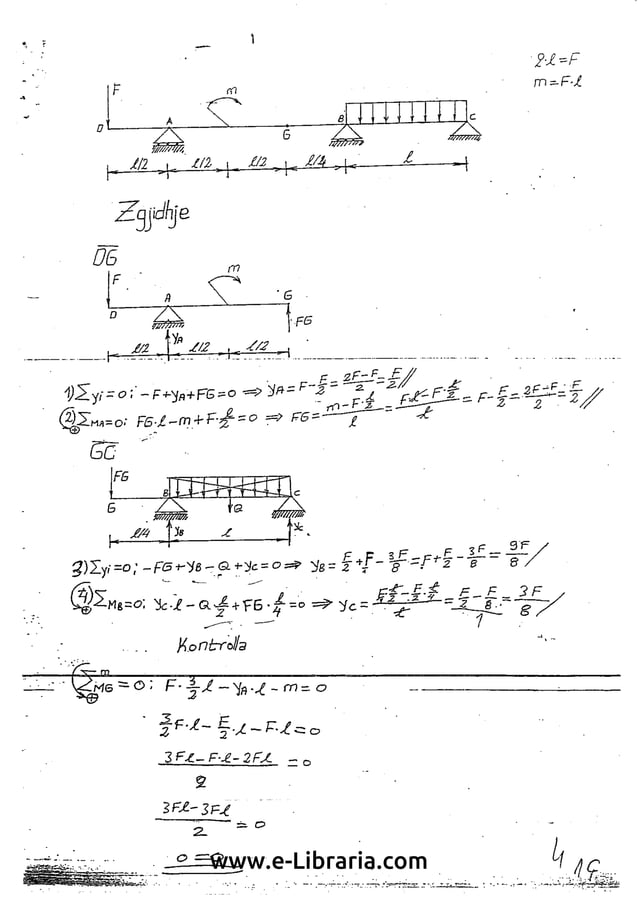 1
q·l=F
m=F·l
F
m
D
A
G
B
C
l/2
l/2
l/2
l/4
l
Zgjidhje
DG
F
m
D
A
G
YA
FG
l/2
l/2
l/2
1) ΣYi=0; -F+YA+FG=0 ⇒ YA=F-F/2=(2F-F)/2=F/2//
2) ΣMA=0; FG·l-m+F·l/2=0 ⇒ FG=(m-F·l/2)/l=(F·l-F·l/2)/l=F-F/2=(2F-F)/2=F/2//
GC
FG
G
B
C
Q
YB
Yc
l/4
l
3) ΣYi=0; -FG+YB-Q+Yc=0 ⇒ YB=F/2+F-3F/8=F+F/2-3F/8=9F/8/
4) ΣMB=0; Yc·l-Q·l/2+FG·l/4=0 ⇒ Yc=(F·l/2-F/2·l/4)/l=(F/2-F/8)/1=3F/8/
Kontrolla
m
ΣMG=0; F·3/2l-YA·l-m=0
3/2F·l-F/2·l-F·l=0
(3Fl-F·l-2Fl)/2=0
(3Fl-3Fl)/2=0
0=0
www.e-Libraria.com